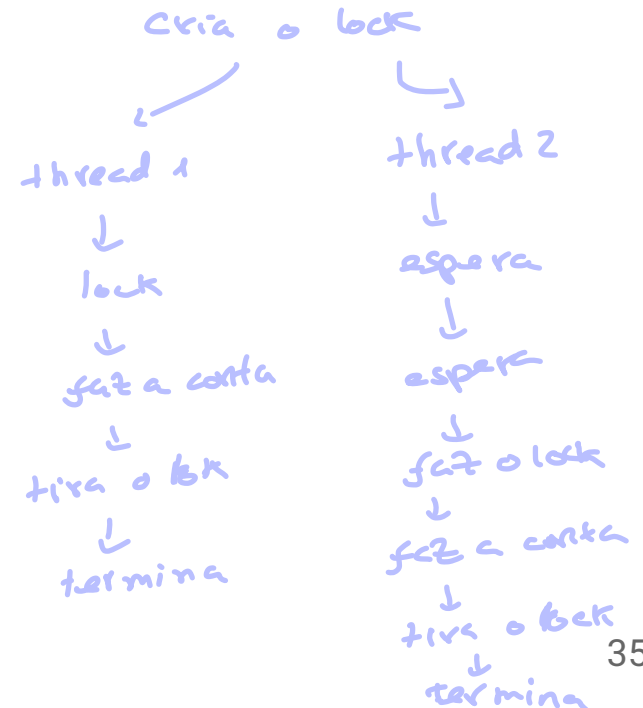 Cria o lock
thread 1
lock
faz a conta
tira o lock
termina
thread 2
espera
espera
faz o lock
faz a conta
tira o lock
termina
35